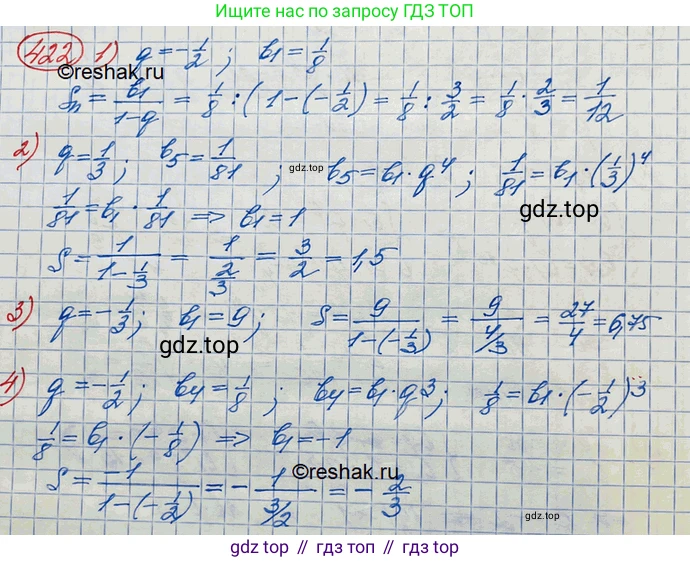 Ищите нас в поисковике ГДЗ ТОП
422 1) q=-1/2; b1=1/8
©reshak.ru
Sn = b1/(1-q) = 1/8 : (1-(-1/2) = 1/8 : 3/2 = 1/8 · 2/3 = 1/12
2) q=1/3; b5=1/81; b5=b1·q^4; 1/81=b1·(1/3)^4
gdz.top
1/81=b1·1/81 => b1=1
gdz.top
S=1/(1-1/3) = 1/(2/3) = 3/2 = 1,5
3) q=-1/3; b1=9; S=9/(1-(-1/3)) = 9/(4/3) = 27/4=6,75
gdz.top
4) q=-1/2; b4=1/8; b4=b1·q^3; 1/8=b1·(-1/2)^3
1/8=b1·(-1/8) => b1=-1
©reshak.ru
S=-1/(1-(-1/2)) = -1/(3/2) = -2/3
gdz.top // гдз.топ // gdz.top // гдз.топ